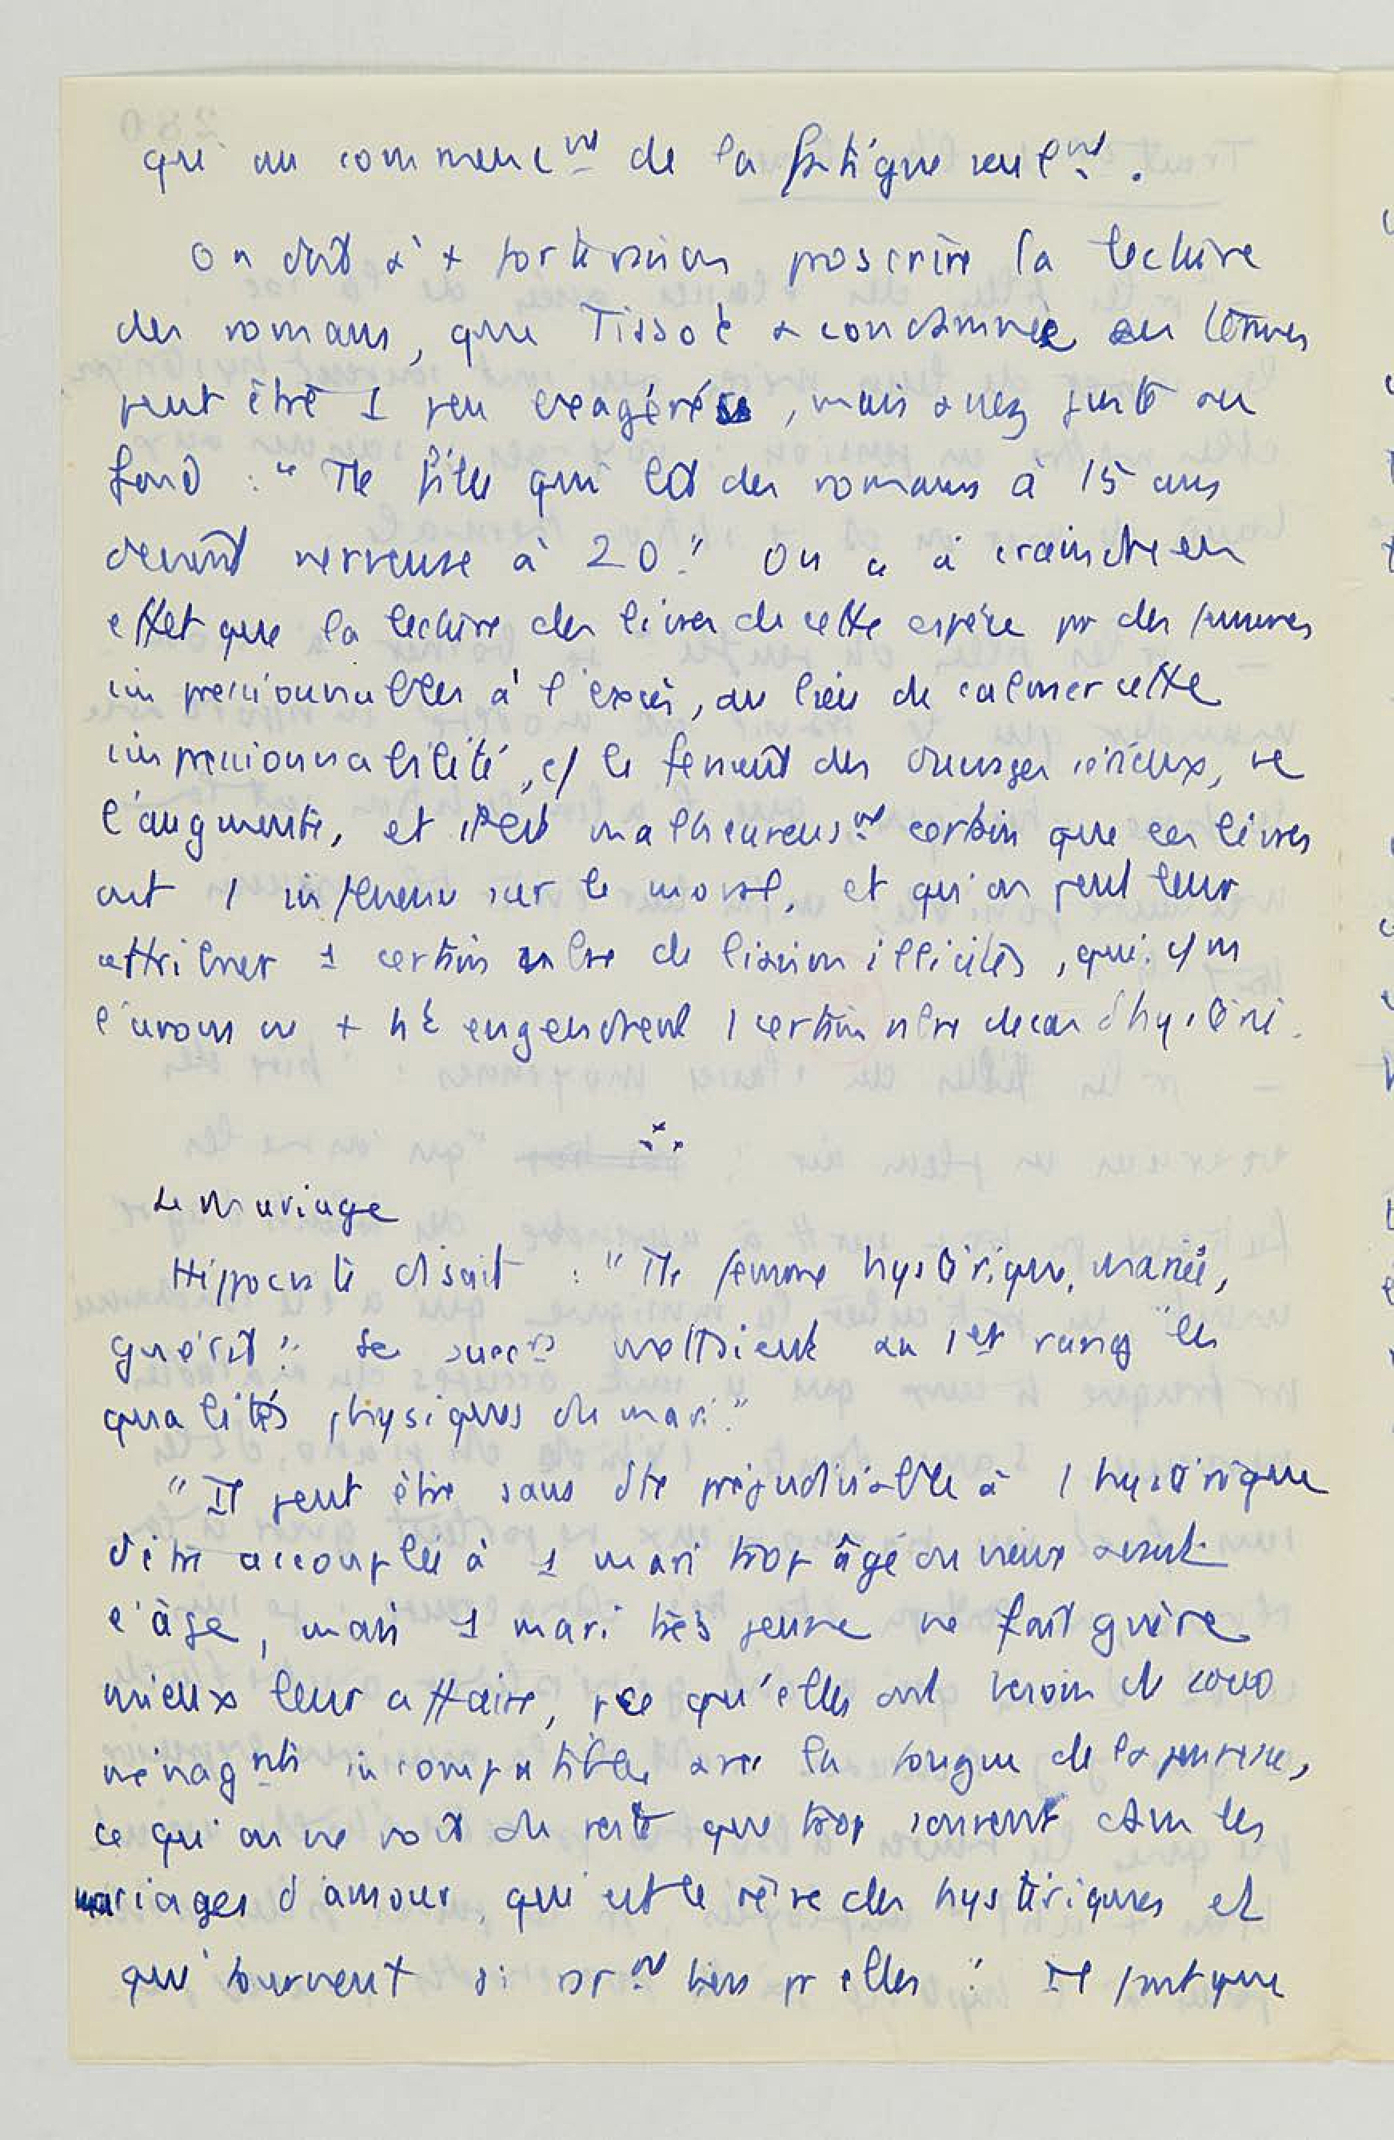 qu'au commenc^nt de la fatigue seul^nt.
On doit à + forte raison proscrire la lecture
des romans, que Tissot a condamnée en termes
peut être 1 peu exagérés, mais assez juste au
fond : "Tte fille qui lit des romans à 15 ans
devient nerveuse à 20." On a à craindre en
effet que la lecture des livres de cette espèce pr des femmes
impressionnables à l'excès, au lieu de calmer cette
impressionnabilité, c/ le feraient des ouvrages sérieux, ne
l'augmente, et il est malheureus^nt certain que ces livres
ont 1 influence sur le moral, et qu'on peut leur
attribuer 1 certain nbre de liaisons illicites, qui, c/ ns
l'avons vu + ht engendrent 1 certain nbre de cas d'hystérie.
Le mariage
Hippocrate disait : "Tte femme hystérique, mariée,
guérit". Se successeurs mettaient au 1er rang "les
qualités physiques du mari."
"Il peut être sans dte préjudiciable à 1 hystérique
d'être accouplée à 1 mari trop âgé ou vieux avant
l'âge, mais 1 mari très jeune ne fait guère
mieux leur affaire, pce qu'elles ont besoin de
ménag^nts incompatibles avec la fougue de la jeunesse,
ce qu'on ne voit du reste que trop souvent dans les
mariages d'amour, qui est le rêve des hystériques et
qui tournent si rar^nt bien pr elles". Il faut que